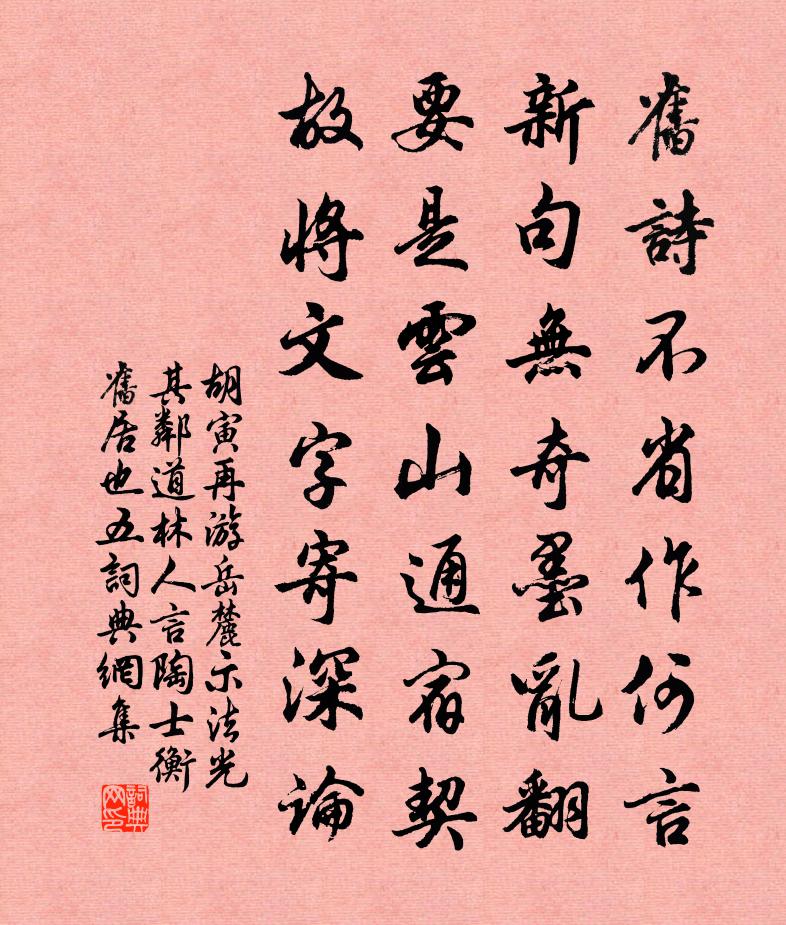 舊詩不省作何言
新句無奇墨亂翻
要是雲山通宿契
故將文字寄深論
胡寅再游岳麓示法光
其鄰道林人言陶士衡
舊居也五詞典網集
詞典
网印